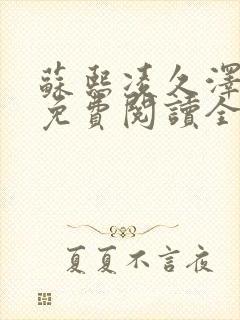 蘇熙凌久澤
免費閱讀全
夏夏不言夜